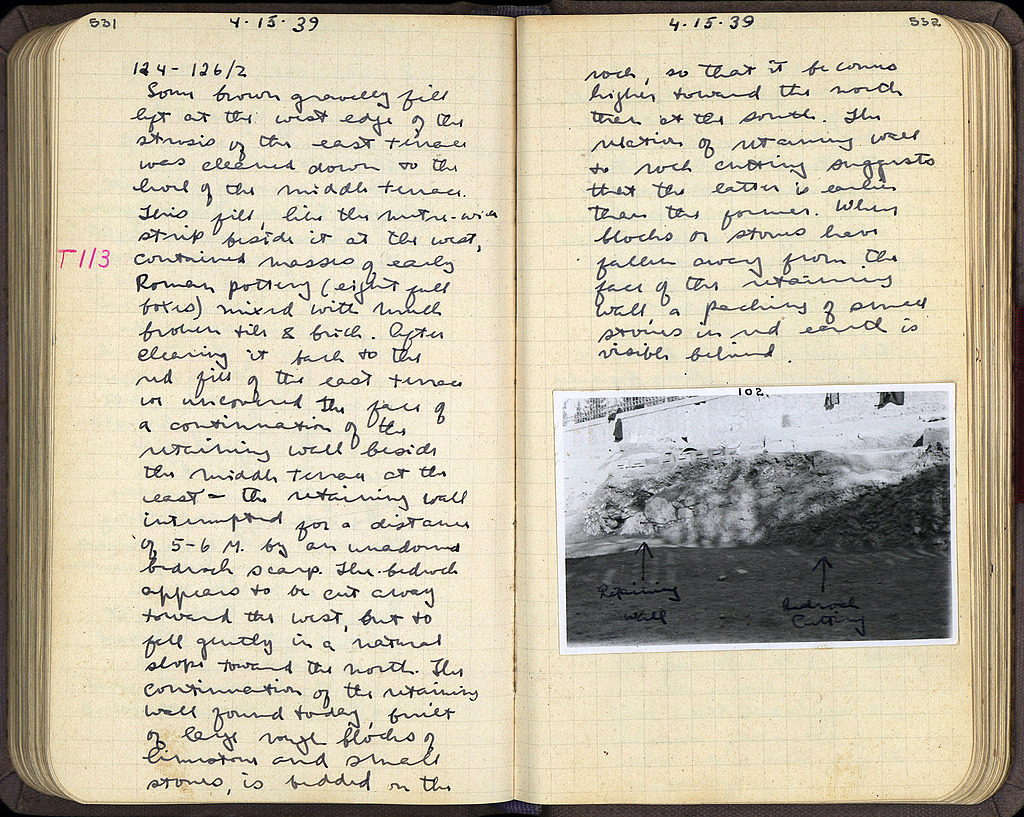 531
4·15·39
124-126/2
Some brown gravelly fill
left at the west edge of the
strosis of the east terrace
was cleaned down to the
level of the middle terrace.
This fill, like the metre-wide
strip beside it at the west,
T113
contained masses of early
Roman pottery (eight full
boxes) mixed with much
broken tile & brick. After
clearing it back to the
red fill of the east terrace
we uncovered the face of
a continuation of the
retaining wall beside
the middle terrace at the
east - the retaining wall
interrupted for a distance
of 5-6 M. by an unadorned
bedrock scarp. The bedrock
appears to be cut away
toward the west, but to
fall gently in a natural
slope toward the north. The
continuation of the retaining
wall found today, built
of large rough blocks of
limestone and small
stones, is bedded on the
4·15·39
532
rock, so that it becomes
higher toward the north
than at the south. The
relation of retaining wall
to rock cutting suggests
that the latter is earlier
than the former. When
blocks or stones have
fallen away from the
face of the retaining
wall, a packing of small
stones in red earth is
visible behind.
102.
Retaining
Wall
Bedrock
Cutting